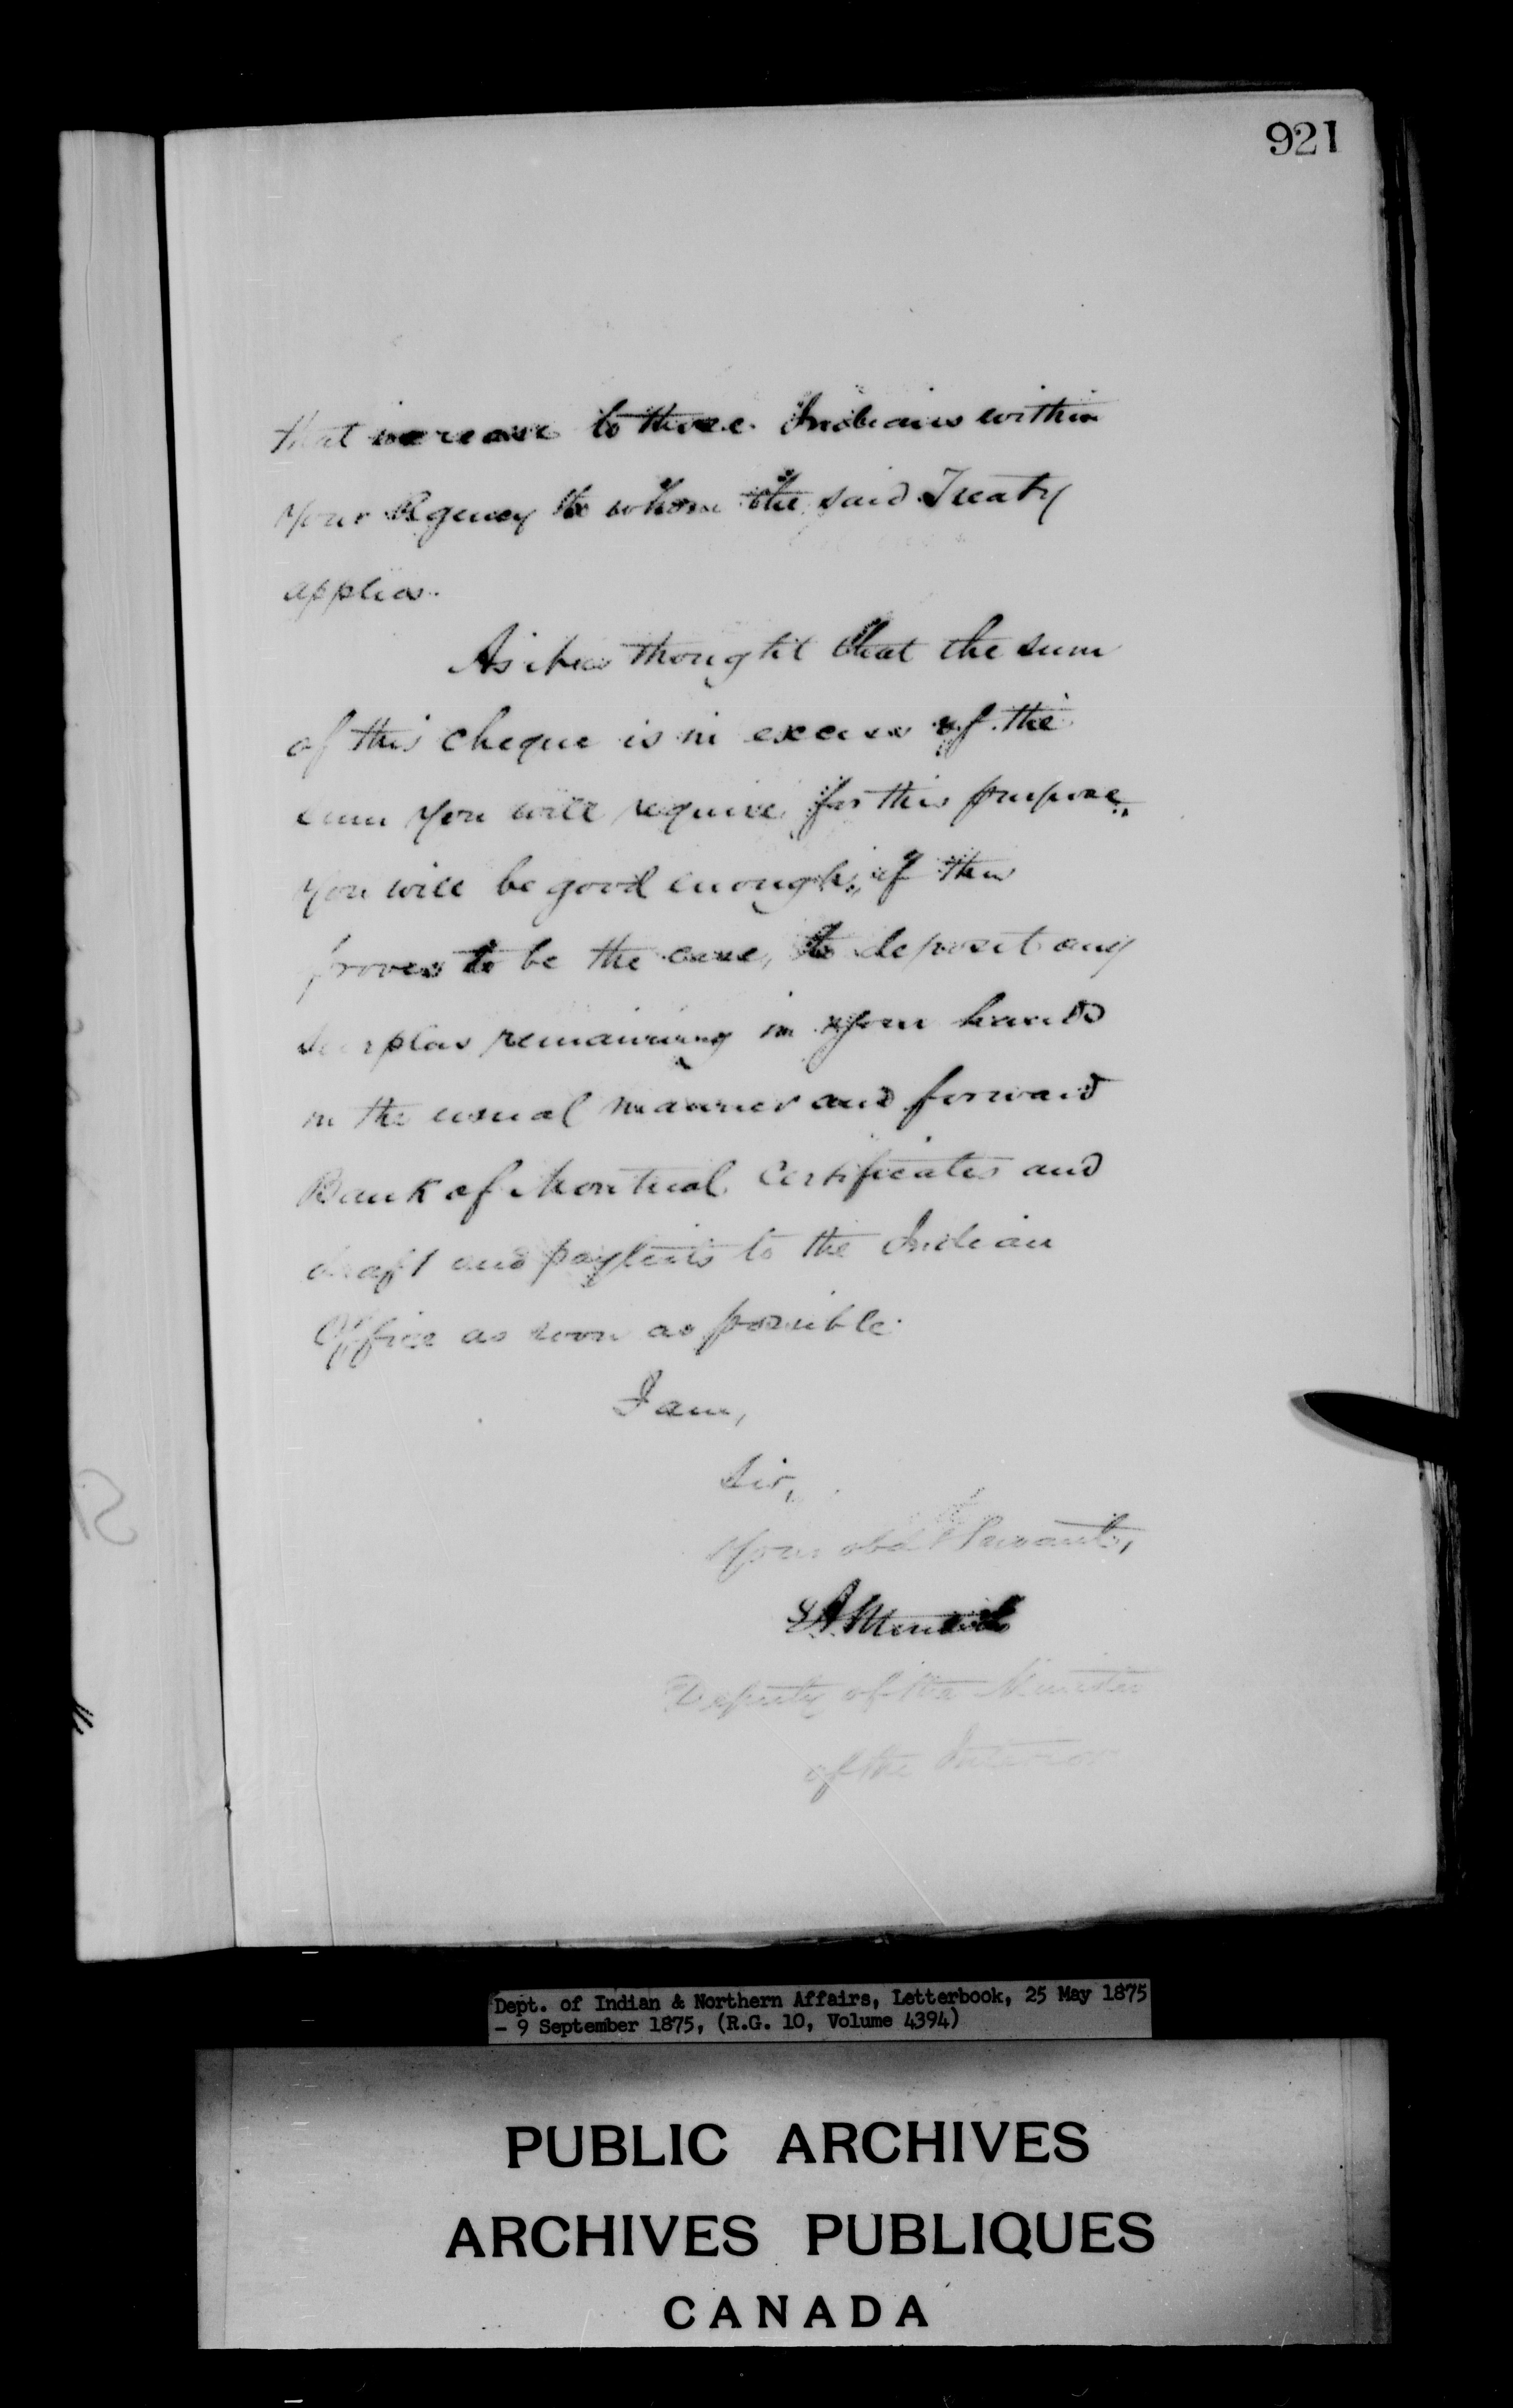 921
that increase to those Indians within
your Agency to whom the said Treaty
applies.
As it is thought that the sum
of this cheque is in excess of the
sum you will require for this purpose,
you will be good enough, if this
proves to be the case, to deposit any
surplus remaining in your hands
in the usual manner and forward
Bank of Montreal Certificates and
draft and paylists to the Indian
Office as soon as possible.
I am,
Sir,
Your obdt Servant,
Deputy of the Minister
of the Interior
Dept. of Indian & Northern Affairs, Letterbook, 25 May 1875
- 9 September 1875, (R.G. 10, Volume 4394)
PUBLIC ARCHIVES
ARCHIVES PUBLIQUES
CANADA